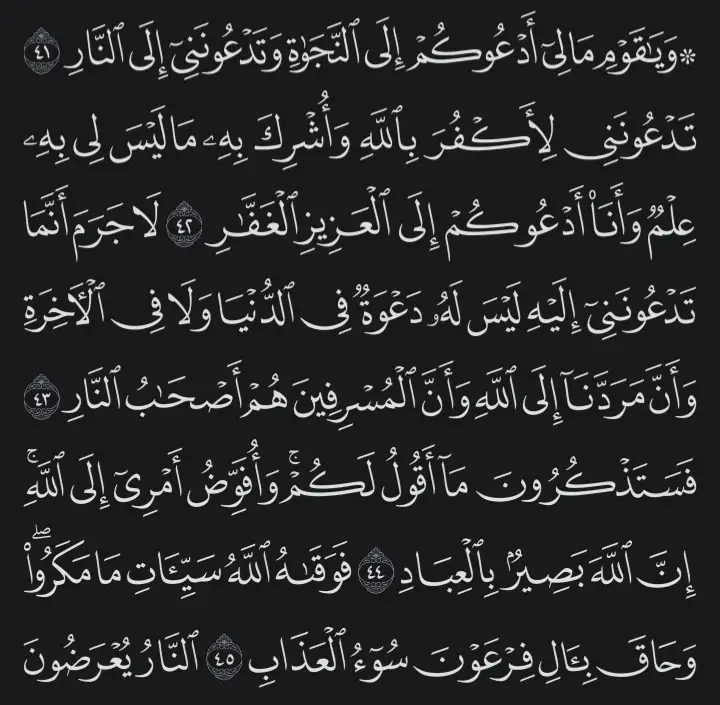 ۞ وَيَـٰقَوْمِ مَا لِىٓ أَدْعُوكُمْ إِلَى ٱلنَّجَوٰةِ وَتَدْعُونَنِىٓ إِلَى ٱلنَّارِ ٤١
تَدْعُونَنِى لِأَكْفُرَ بِٱللَّهِ وَأُشْرِكَ بِهِۦ مَا لَيْسَ لِى بِهِۦ
عِلْمٌ وَأَنَا۠ أَدْعُوكُمْ إِلَى ٱلْعَزِيزِ ٱلْغَفَّـٰرِ ٤٢ لَا جَرَمَ أَنَّمَا
تَدْعُونَنِىٓ إِلَيْهِ لَيْسَ لَهُۥ دَعْوَةٌ فِى ٱلدُّنْيَا وَلَا فِى ٱلْـَٔاخِرَةِ
وَأَنَّ مَرَدَّنَآ إِلَى ٱللَّهِ وَأَنَّ ٱلْمُسْرِفِينَ هُمْ أَصْحَـٰبُ ٱلنَّارِ ٤٣
فَسَتَذْكُرُونَ مَآ أَقُولُ لَكُمْ ۚ وَأُفَوِّضُ أَمْرِىٓ إِلَى ٱللَّهِ ۚ
إِنَّ ٱللَّهَ بَصِيرٌۢ بِٱلْعِبَادِ ٤٤ فَوَقَىٰهُ ٱللَّهُ سَيِّـَٔاتِ مَا مَكَرُوا۟ ۖ
وَحَاقَ بِـَٔالِ فِرْعَوْنَ سُوٓءُ ٱلْعَذَابِ ٤٥ ٱلنَّارُ يُعْرَضُونَ